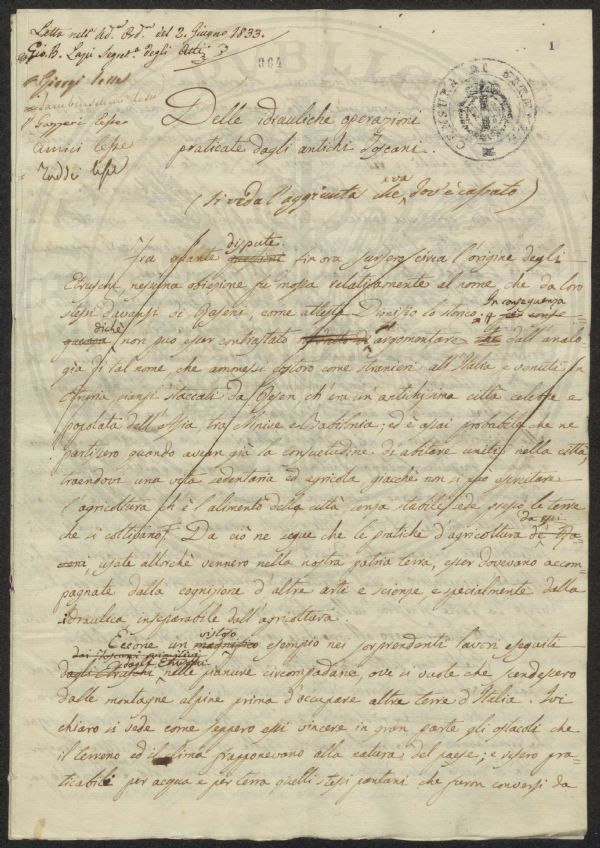 Letta nell' Ad.ª Ord.ª del 2. Giugno 1833.
Gio. B. Lapi Segret.º degli Atti
1
964
Giorgi lesse
lesse
Gazzeri lesse
Amici lesse
lesse
CENSURA
Delle idrauliche operazioni
praticate dagli antichi Toscani.
(Si veda l'aggiunta che va dov'è cassato)
dispute
Fra quante finora sursero circa l'origine degli
Etruschi, nessuna obiezione fu mossa relativamente al nome che da loro
In conseguenza
stessi davansi di Raseni, come attesta Dionisio lo storico;
di che
non può esser contrastato argomentare dall'analo
gia di tal nome, che ammessi costoro come stranieri all'Italia e venuti in
prima staccati da Resen ch'era un'antichissima città celebre e
popolata dell'Assia tra Ninive e Babilonia; ed è assai probabile che ne
partissero quando avean già la consuetudine di abitare uniti nella città,
traendovi una vita sedentaria ed agricola giacchè non si può esercitare
l'agricoltura ch'è l'alimento della città senza stabile sede presso le terre
da essi
che si coltivano. Da ciò ne segue che le pratiche d'agricoltura
usate allorchè vennero nella nostra patria terra, esser dovevano accom-
pagnate dalla cognizione d'altre arti e scienze e specialmente dalla
Idraulica inseparabile dall'agricoltura.
Eccone un esempio nei sorprendenti lavori eseguiti
dai Toscani primitivi
dagli Etruschi
nelle pianure circompadane ove si vuole che scendessero
dalle montagne alpine prima d'occupare altre terre d'Italia. Ivi
chiaro si vede come seppero essi vincere in gran parte gli ostacoli che
il terreno ed il clima frapponevano alla natura del paese; e resero pra-
ticabili per acqua e per terra quelli stessi pantani che furon conversi da